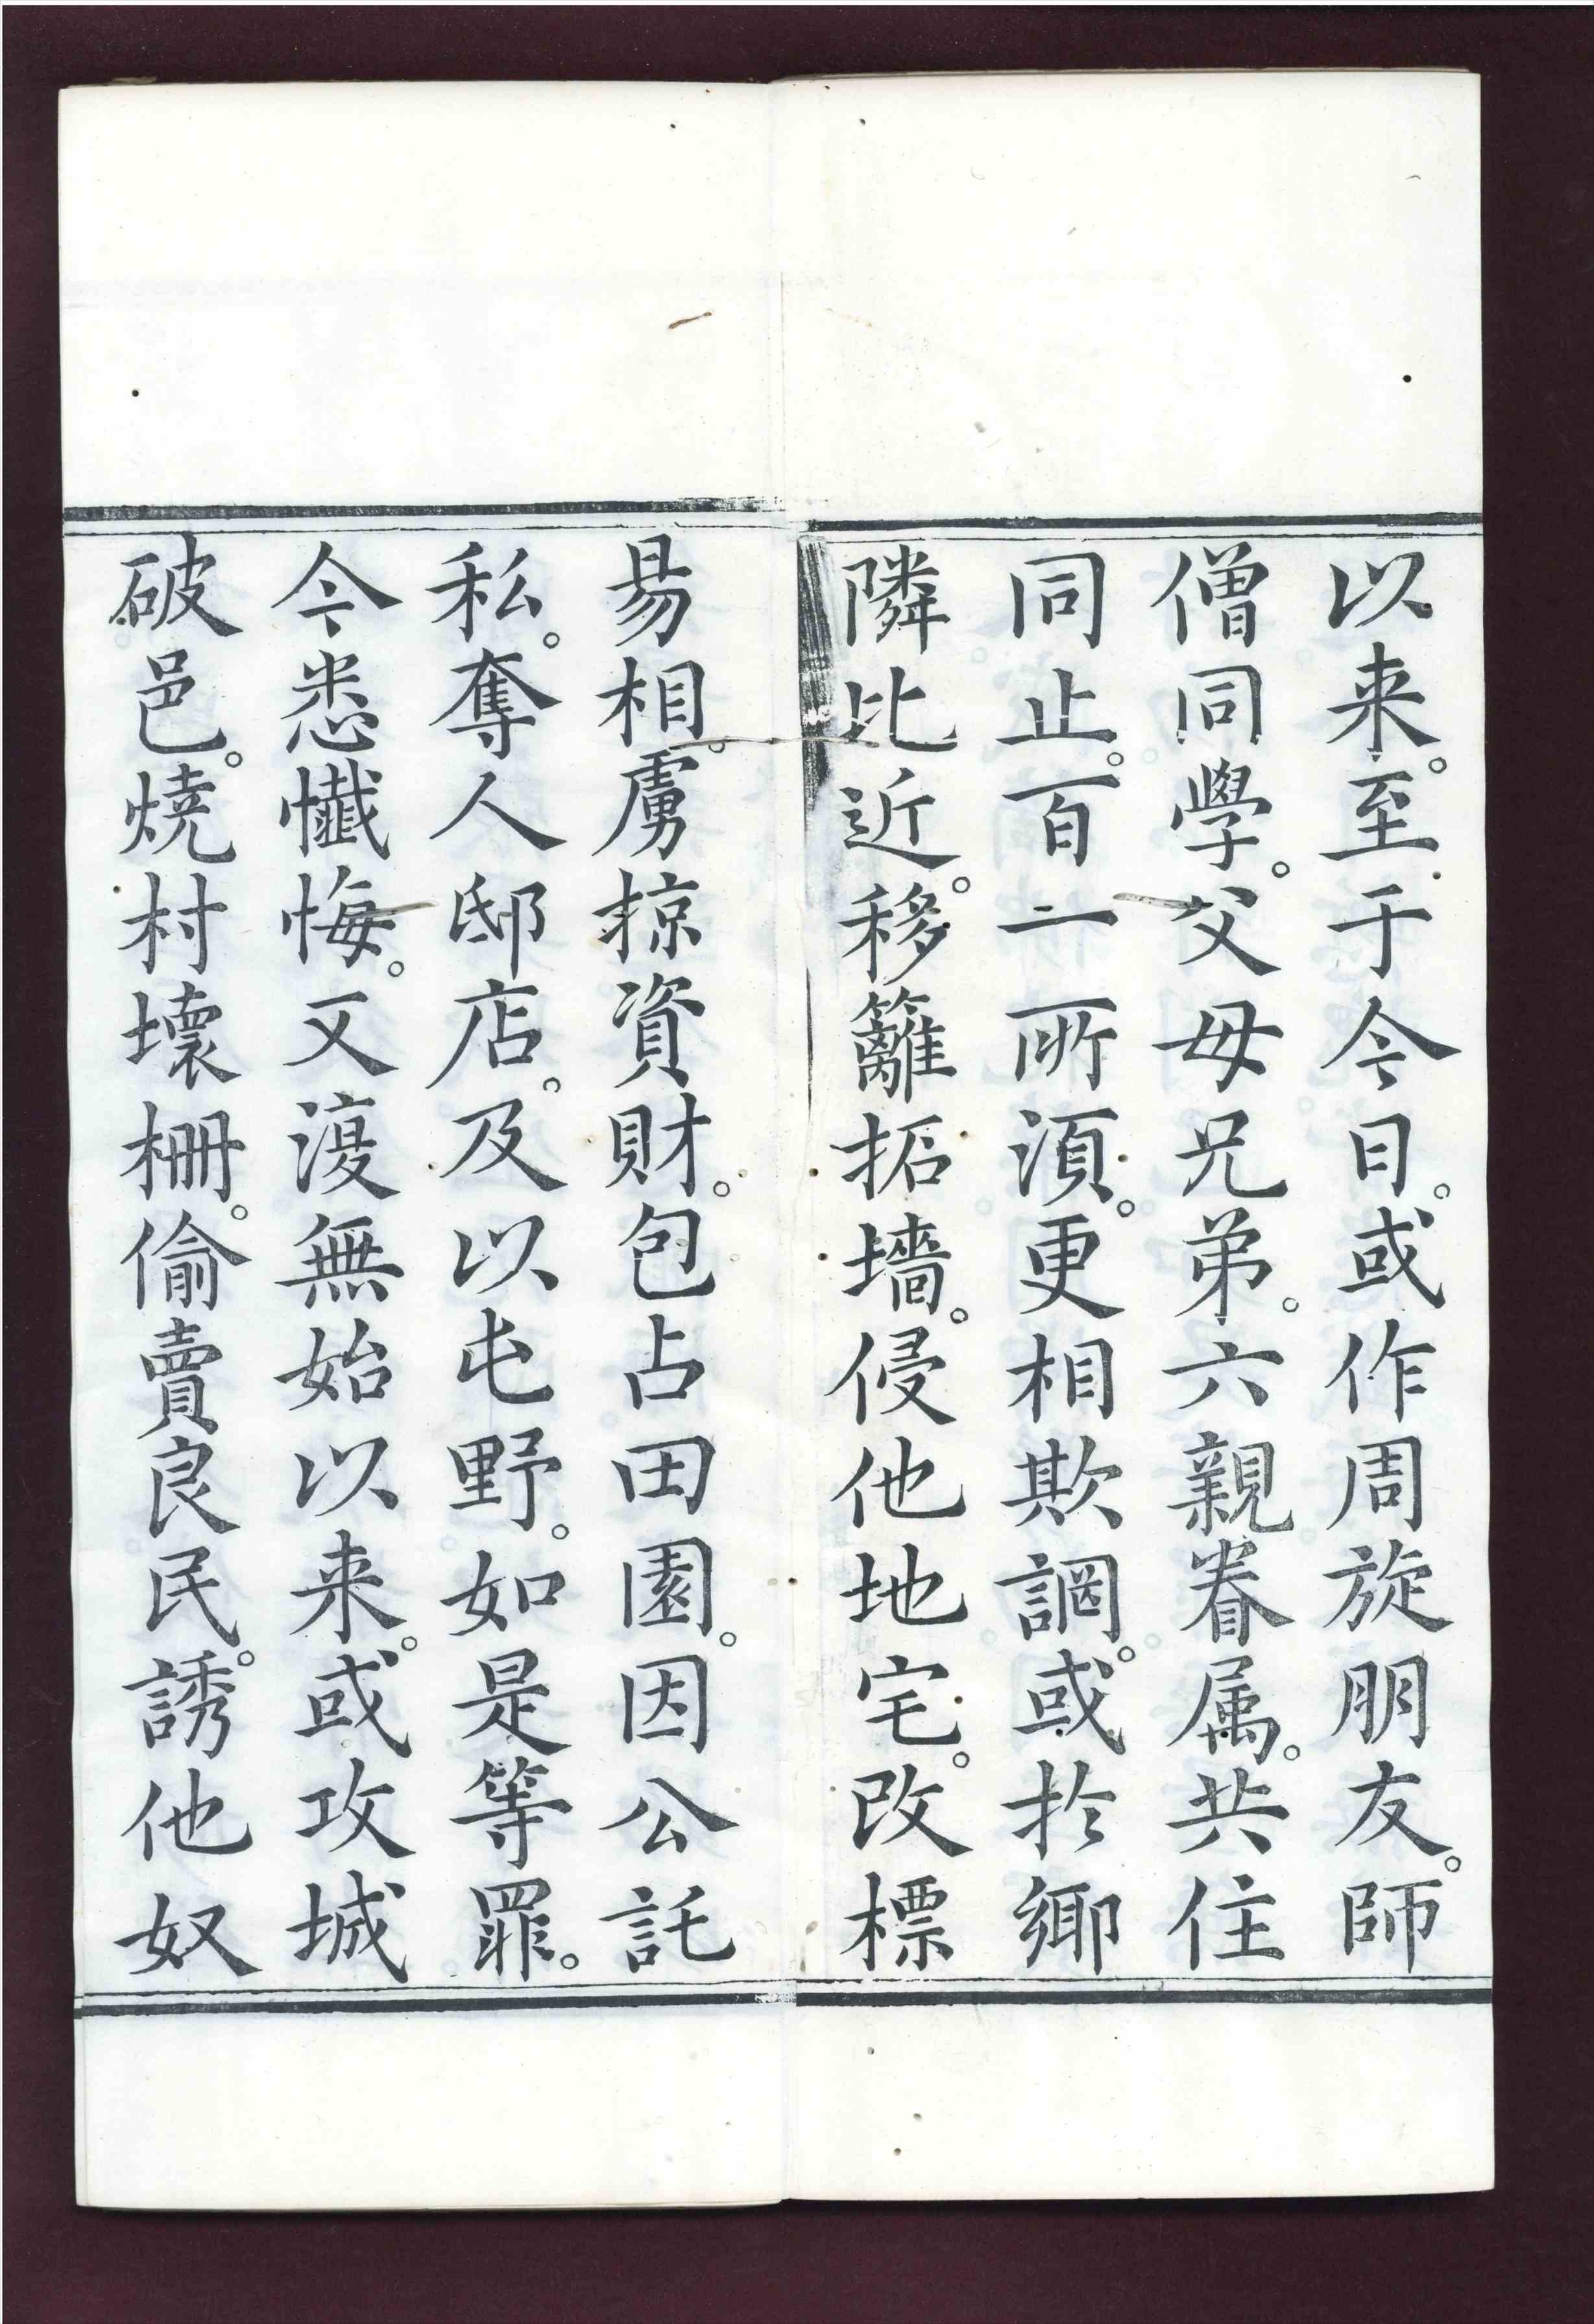 以来。至于今日。或作周旋朋友。師
僧同學。父母兄弟。六親眷属。共住
同止。百一所湏。更相欺誷。或扵鄉
隣比近。移籬拓墻。侵他地宅。改標
易相。虜掠資財。包占田園。因公託
私。奪人邸店。及以屯野。如是等罪。
今悉懺悔。又復無始以来。或攻城
破邑。燒村壞柵。偷賣良民。誘他奴